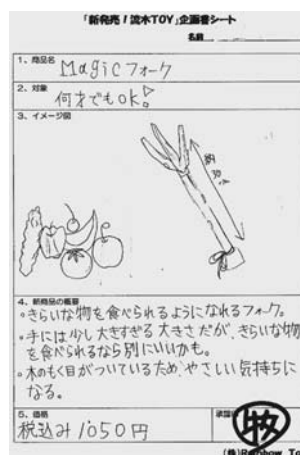 「新発売！流木TOY」企画書シート
名前
1、商品名
Magicフォーク
2、対象
何才でもOK!
3、イメージ図
約30cm
4、新商品の概要
・きらいな物を食べられるようになれるフォーク。
・手には少し大きすぎる大きさだが、きらいな物
を食べられるなら別にいいかも。
・木のもく目がついているため、やさしい気持ちに
なる。
5、価格
税込み1050円
承認
(株)Rainbow To